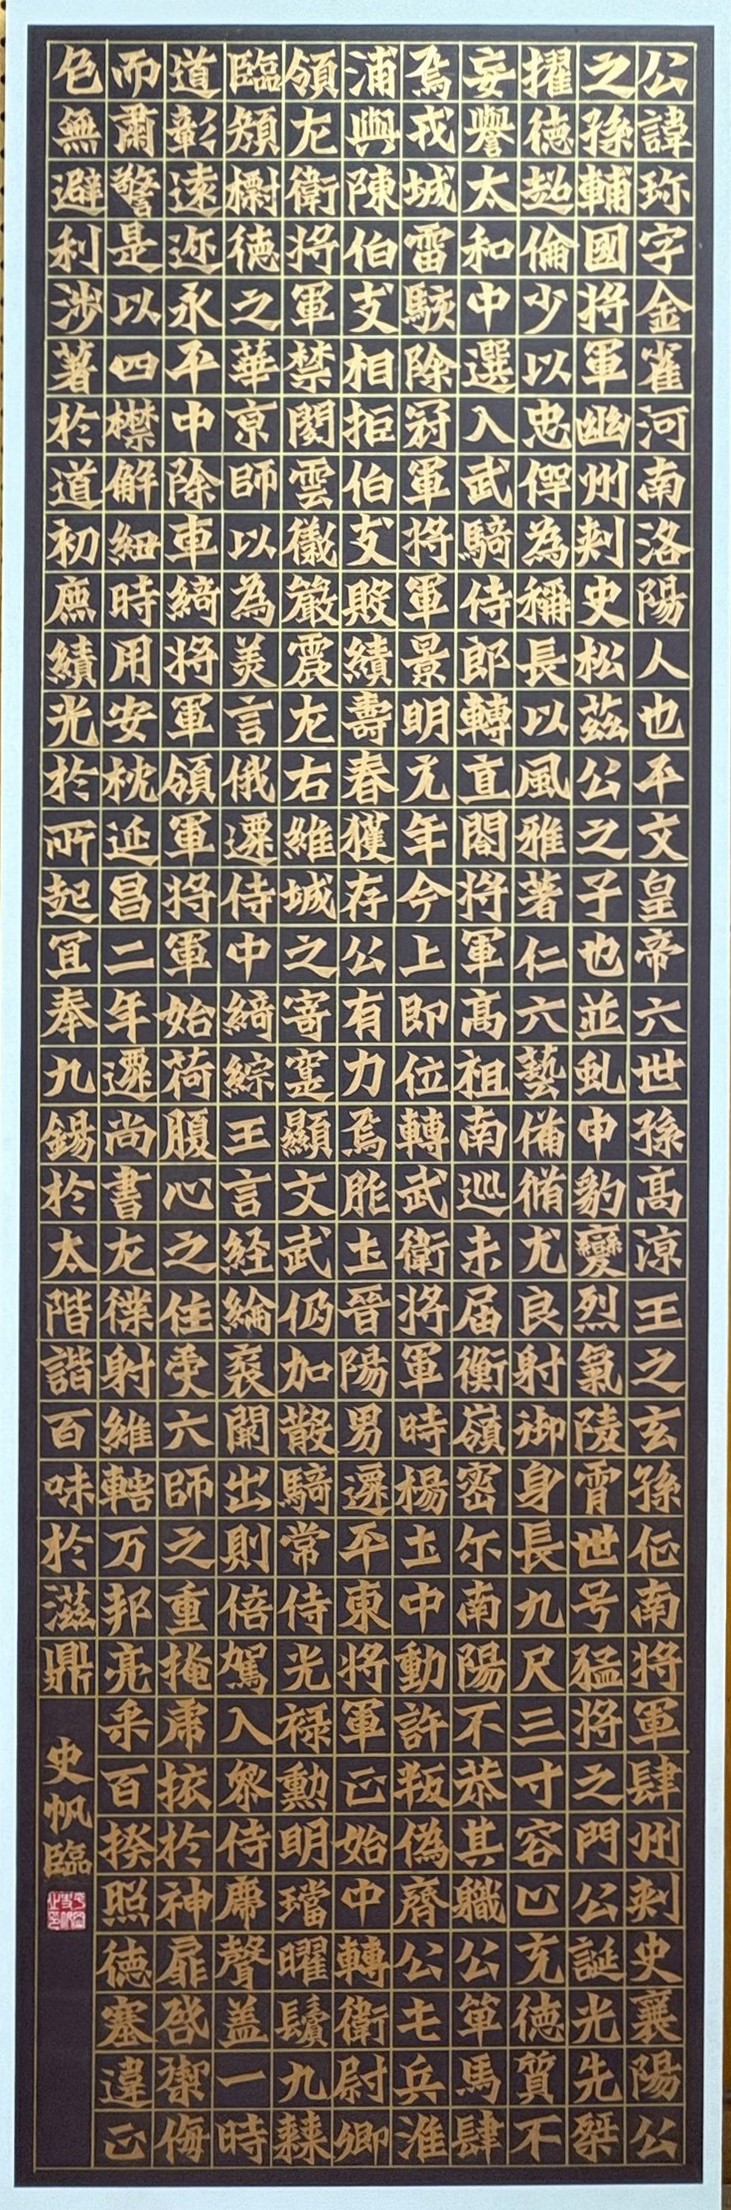 公諱珎字金雀河南洛陽人也平文皇帝六世孫高涼王之玄孫征南将軍肆州刾史襄陽公
之孫輔國将軍幽州刾史松茲公之子也並虬中豹變烈氣陵霄世号猛将之門公誕光先桀
擢徳超倫少以忠倬為稱長以風雅著仁六藝備脩尤良射御身長九尺三寸容止充徳質不
妄譽太和中選入武騎侍郎轉直閤将軍高祖南巡未届衡嶺密尓南陽不恭其職公單馬肆
焉戎城雷駭除冠軍将軍景明元年今上即位轉武衛将軍時楊土中動許叛偽齊公屯兵淮
浦與陳伯支相拒伯支敗績壽春獲存公有力焉胙土晉陽男遷平東将軍正始中轉衛尉卿
領左衛将軍禁闥雲儀嚴震左右維城之寄寔顯文武仍加散騎常侍光禄勳明璫曜鬢九棘
臨頬樹徳之華亰師以為美言俄遷侍中綺綜王言経綸袞闕出則倍駕入叅侍席聲盖一時
道彰遠迩永平中除車綺将軍領軍将軍始荷腹心之住受六師之重掩席扷於神扉啓禦侮
而肅警是以四襟解細時用安枕延昌二年遷尚書左僕射維轄万邦亮采百揆照徳塞違正
色無避利涉著於道初庶績光於所起宜奉九錫於太階諧百味於滋鼎
史帆臨